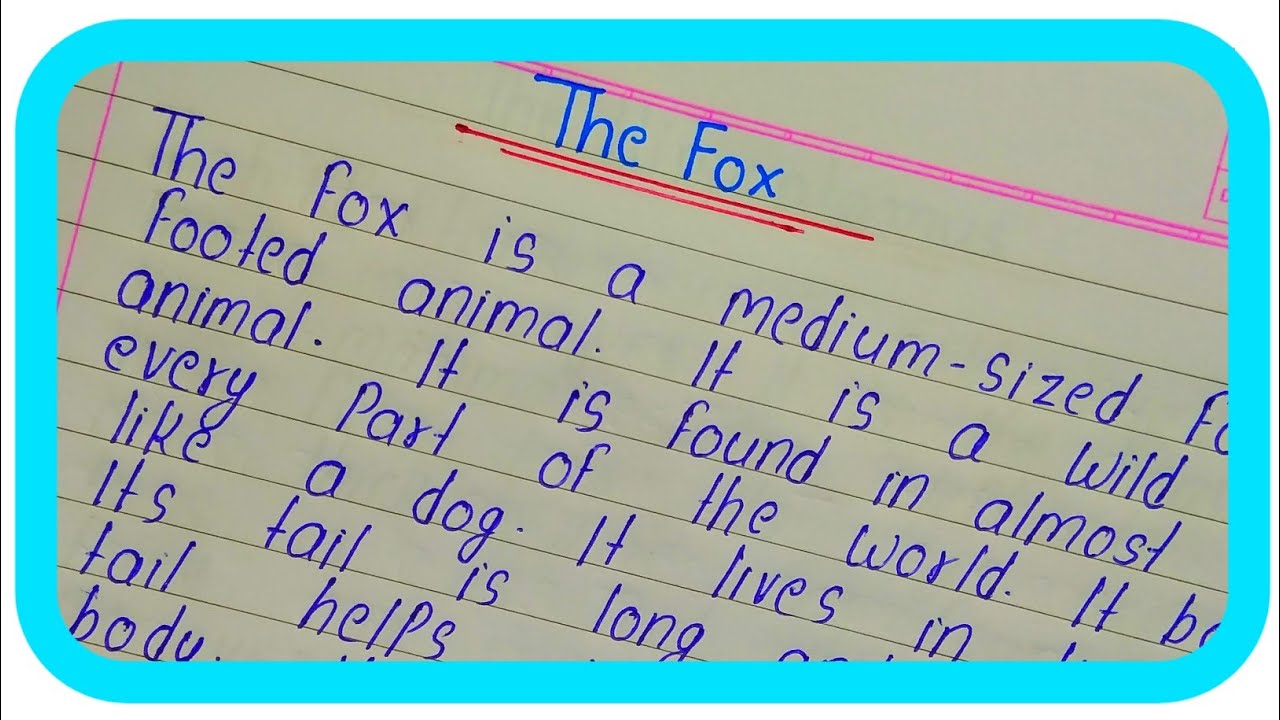 The Fox
The fox is a medium-sized
footed animal. It is a wild
animal. It is found in almost
every part of the world. It
like a dog. It lives in
Its tail is long
tail helps
body.